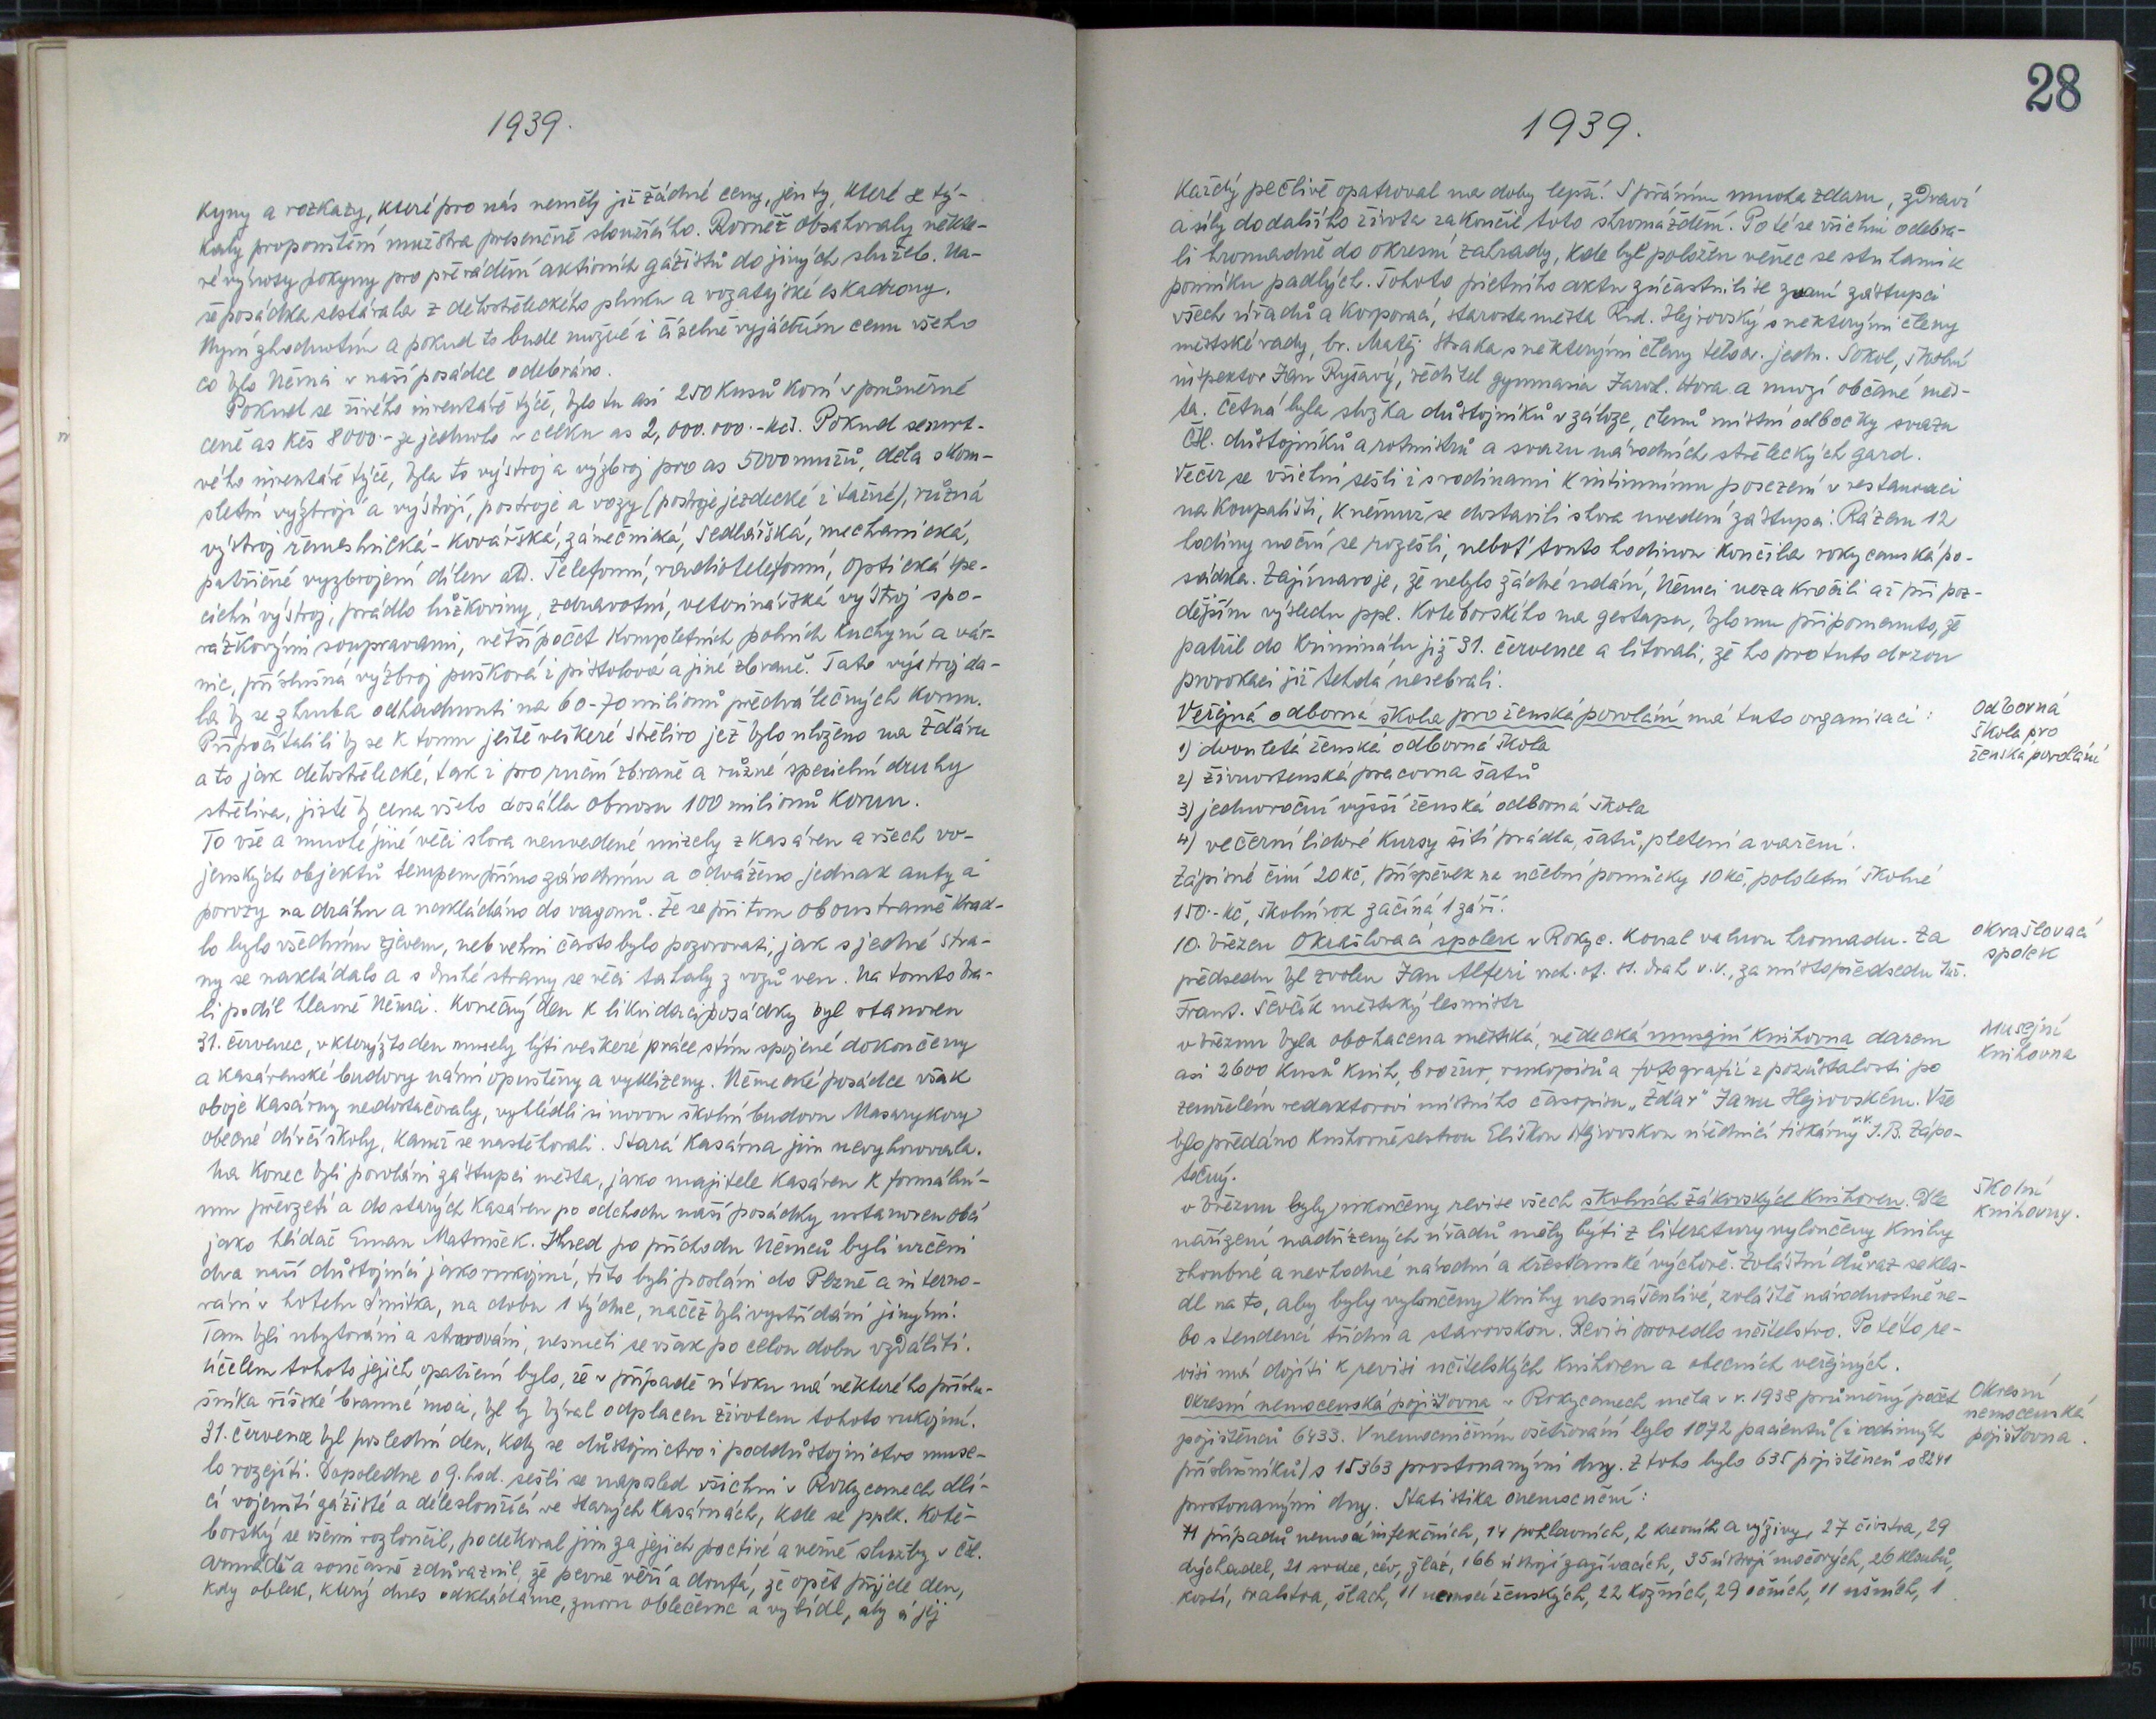 1939.
kyny a rozkazy, které pro nás neměly již žádné ceny, jen ty, které se tý-
kaly propouštění mužstva presenčně sloužícího. Rovněž obsahovaly někte-
ré výnosy pokyny pro převádění aktivních gážistů do jiných služeb. Na-
še posádka sestávala z dělostřeleckého pluku a vozatajské eskadrony.
Nyní zhodnotím a pokud to bude možné i číselně vyjádřím cenu všeho
co bylo Němci v naší posádce odebráno.
Pokud se živého inventáře týče, bylo tu asi 250 kusů koní v průměrné
ceně as Kčs 8000.- za jednoho v celku as 2,000.000.- Kčs. Pokud se mrt-
vého inventáře týče, byla to výstroj a výzbroj pro as 5000 mužů, děla s kom-
pletní výzbrojí a výstrojí, postroje a vozy (postroje jezdecké i tažné), různá
výstroj řemeslnická - kovářská, zámečnická, sedlářská, mechanická,
patřičné vyzbrojení dílen atd. Telefonní, radiotelefonní, optická spe-
cielní výstroj, prádlo lůžkoviny, zdravotní, veterinářská výstroj s po-
rážkovými soupravami, větší počet kompletních polních kuchyní a vár-
nic, příslušná výzbroj pušková i pistolová a jiné zbraně. Tato výstroj da-
la by se zhruba odhadnouti na 60-70 milionů předválečných korun.
Připočítali li by se k tomu ještě veškeré střelivo jež bylo uloženo na Žďáru
a to jak dělostřelecké, tak i pro ruční zbraně a různé specielní druhy
střeliva, jistě by cena všeho dosáhla obnosu 100 milionů korun.
To vše a mnohé jiné věci slova neuvedené mizely z kasáren a všech vo-
jenských objektů tempem přímo závodním a odváženo jednak auty a
povozy na dráhu a nakládáno do vagonů. Že se při tom oboustranně krad-
lo bylo všedním zjevem, neb velmi často bylo pozorovati, jak s jedné stra-
ny se nakládalo a s druhé strany se věci tahaly z vozů ven. Na tomto bra-
li podíl hlavně Němci. Konečný den k likvidaci posádky byl stanoven
31. červenec, v kterýžto den musely býti veškeré práce s tím spojené dokončeny
a kasárenské budovy námi opuštěny a vyklizeny. Německé posádce však
oboje kasárny nedostačovaly, vyhlédli si novou školní budovu Masarykovy
obecné dívčí školy, kamž se nastěhovali. Stará kasárna jim nevyhovovala.
Na konec byli povoláni zástupci města, jako majitele kasáren k formální-
mu převzetí a do starých kasáren po odchodu naší posádky ustanoven obcí
jako hlídač Eman Matoušek. Ihned po příchodu Němců byli určeni
dva naší důstojníci jako rukojmí, tito byli posláni do Plzně a interno-
váni v hotelu Smitka, na dobu 1 týdne, načež byli vystřídáni jinými.
Tam byli ubytováni a stravováni, nesměli se však po celou dobu vzdáliti.
Účelem tohoto jejich opatření bylo, že v případě útoku na některého příslu-
šníka říšské branné moci, byl by býval odplacen životem tohoto rukojmí.
31. července byl poslední den, kdy se důstojnictvo i poddůstojnictvo muse-
lo rozejíti. Dopoledne o 9. hod. sešli se naposled všichni v Rokycanech dlí-
cí vojenští gážisté a délesloužící ve starých kasárnách, kde se pplk. Kotě-
borský se všemi rozloučil, poděkoval jim za jejich poctivé a věrné služby v čsl.
armádě a současně zdůraznil, že pevně věří a doufá, že opět přijde den,
kdy oblek, který dnes odkládáme, znovu oblečeme a vybídl, aby si jej
28
1939.
každý pečlivě opatroval na doby lepší. S přáním mnoha zdaru, zdraví
a síly do dalšího života zakončil toto shromáždění. Poté se všichni odebra-
li hromadně do okresní zahrady, kde byl položen věnec se stuhami k
pomníku padlých. Tohoto pietního aktu zúčastnili se zvaní zástupci
všech úřadů a korporací, starosta města Rud. Hejrovský s některými členy
městské rady, br. Matěj Straka s některými členy tělov. jedn. Sokol, školní
inspektor Jan Ryšavý, ředitel gymnasia Jarosl. Hora a mnozí občané měs-
ta. Četná byla složka důstojníků v záloze, členů místní odbočky svazu
čsl. důstojníků a rotmistrů a svazu národních střeleckých gard.
Večer se všichni sešli i s rodinami k intimnímu posezení v restauraci
na koupališti, k němuž se dostavili slova uvedení zástupci. Rázem 12
hodiny noční se rozešli, neboť touto hodinou končila rokycanská po-
sádka. Zajímavo je, že nebylo žádné udání, Němci nezakročili až při poz-
dějším výslechu ppl. Kotěborského na gestapu, bylo mu připomenuto, že
patřil do kriminálu již 31. července a litovali, že ho pro tuto drzou
provokaci již tehda nesebrali.
Veřejná odborná škola pro ženská povolání má tuto organisaci:
Odborná
škola pro
ženská povolání
1) dvouletá ženská odborná škola
2) živnostenská pracovna šatů
3) jednoroční vyšší ženská odborná škola
4) večerní lidové kursy šití prádla, šatů, pletení a vaření.
Zápisné činí 20 kč, příspěvek na učební pomůcky 10 kč, pololetní školné
150.- kč, školní rok začíná 1 září.
10. březen Okrašlovací spolek v Rokyc. konal valnou hromadu. Za
okrašlovací
spolek
předsedu byl zvolen Jan Alferi vrch. of. st. drah v.v., za místopředsedu Inž.
Frant. Ševčík městský lesmistr
v březnu byla obohacena městská, vědecká musejní knihovna darem
Musejní
knihovna
asi 2600 kusů knih, brožur, rukopisů a fotografií z pozůstalosti po
zemřelém redaktorovi místního časopisu „Žďár" Janu Hejrovském. Vše
bylo předáno knihovně sestrou Eliškou Hejrovskou úřednicí tiskárny v.v. J. B. Zápo-
točný.
v březnu byly ukončeny revise všech školních žákovských knihoven. Dle
školní
knihovny.
nařízení nadřízených úřadů měly býti z literatury vyloučeny knihy
zhoubné a nevhodné národní a křesťanské výchově. Zvláštní důraz se kla-
dl na to, aby byly vyloučeny knihy nesnášenlivé, zvláště národnostně ne-
bo s tendencí třídní a stavovskou. Revisi provedlo učitelstvo. Po této re-
visi má dojíti k revisi učitelských knihoven a obecních veřejných.
Okresní nemocenská pojišťovna v Rokycanech měla v r. 1938 průměrný počet
Okresní
nemocenská
pojišťovna.
pojištěnců 6433. V nemocničním ošetřování bylo 1072 pacientů (i rodinných
příslušníků) s 15363 prostonanými dny. Z toho bylo 635 pojištěnců s 8241
prostonanými dny. Statistika onemocnění:
11 případů nemocí infekčních, 14 pohlavních, 2 krevních a výživy, 27 čivstva, 29
dýchadel, 21 srdce, cév, žláz, 166 ústrojí zažívacích, 35 ústrojí močových, 26 kloubů,
kostí, svalstva, šlach, 11 nemocí ženských, 22 kožních, 29 očních, 11 ušních, 1